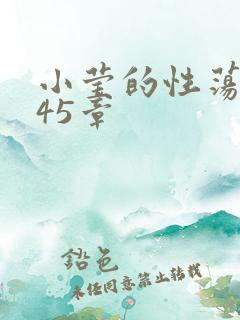 小莹的性荡
45章
铅色
未经同意禁止转载